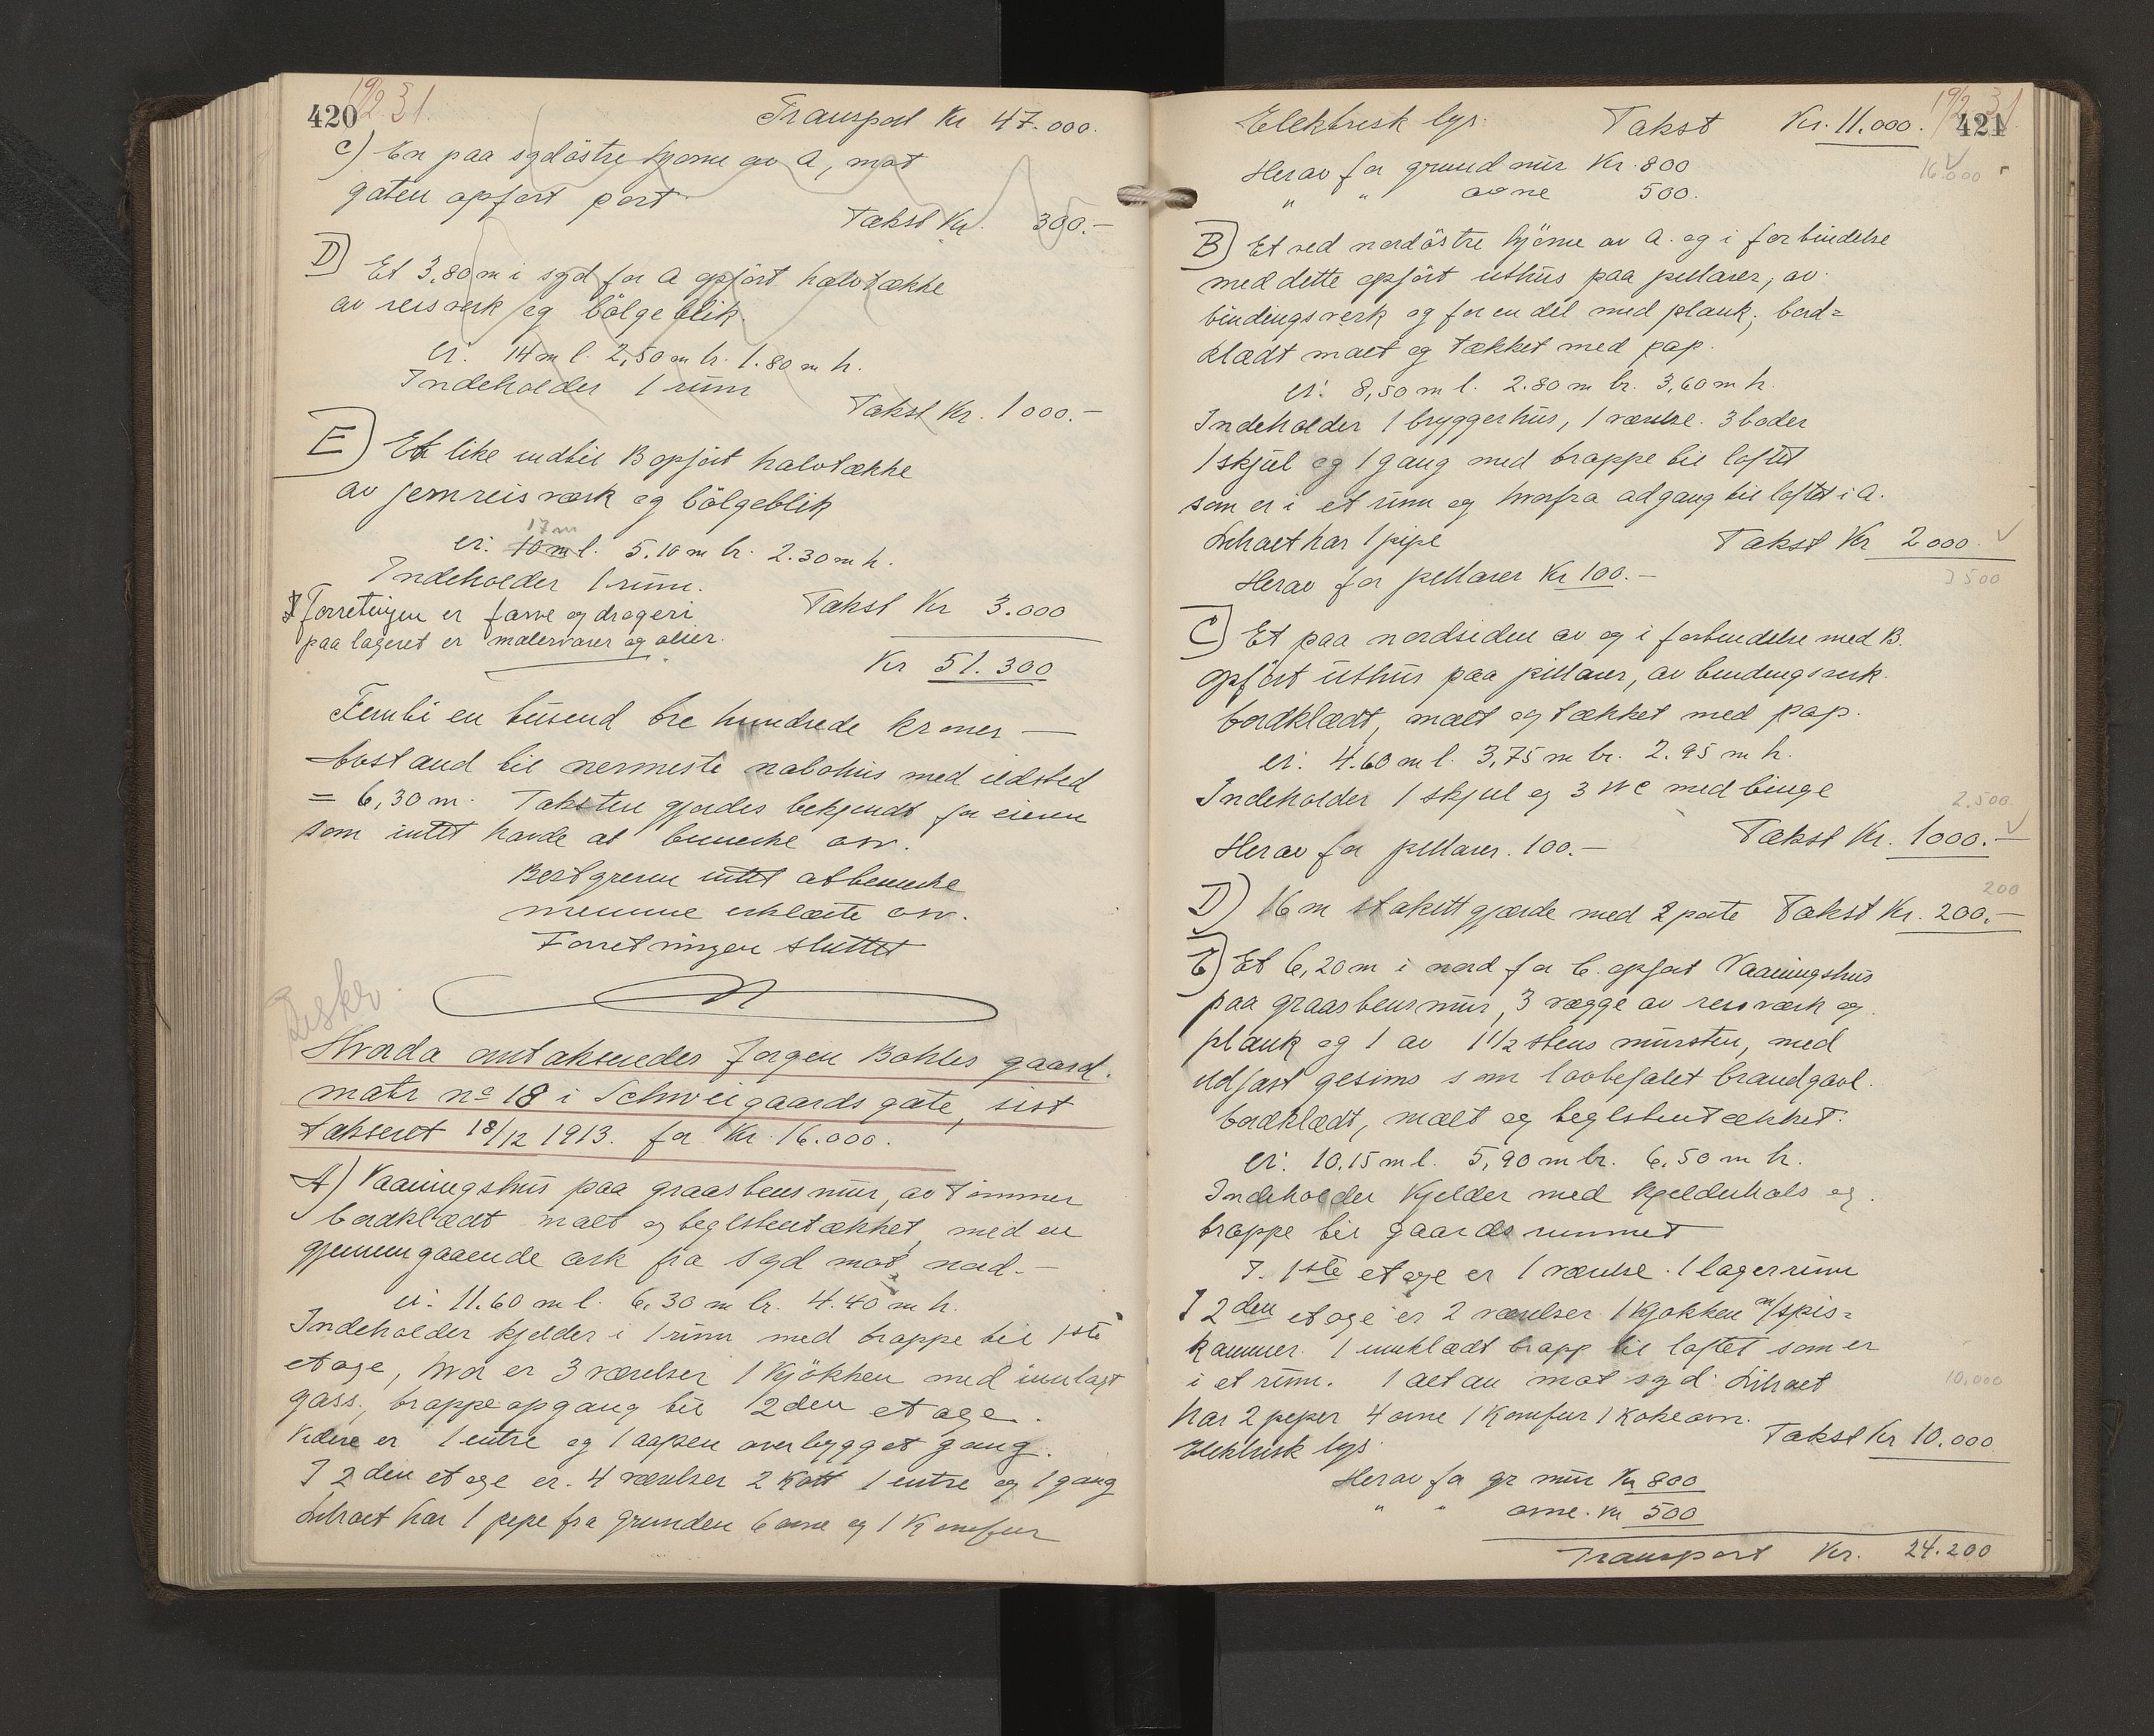 420
19/2 31.
Transport Kr 47.000.
C) En paa sydöstre hjörne av A, mot
gaten opfört port
Takst Kr. 300.-
D) Et 3,80 m i syd for A opfört halvtække
av reisverk og bölgeblik.
er: 14 m l. 2,50 m br. 1.80 m h.
Indeholder 1 rum
Takst Kr. 1000.-
E) Et like indtil B opfört halvtække
av jernreisværk og bölgeblik
17 m
er: 10 m l. 5.10 m br. 2.30 m h.
Indeholder 1 rum.
Forretningen er farve og drogeri
Takst Kr 3.000
paa lageret er malervarer og oljer.
Kr 51.300
Femti en tusend tre hundrede kroner —
Avstand til nermeste nabohus med ildsted
= 6,30 m. Taksten gjordes bekjendt for eieren
som intet havde at bemerke osv.
Bestyreren intet at bemerke
menne erklærte osv.
Forretningen sluttet
Beskr.
Hvorda omtaksendes Jørgen Bohles gaard.
matr no 18 i Schweigaards gate, sist
takseret 18/12 1913. for Kr. 16.000.
A) Vaaningshus paa graastens mur, av tømmer
bordklædt malt og teglstentækket, med en
gjennemgaaende ark fra syd mot nord.-
er: 11.60 m l. 6.30 m br. 4.40 m h.
Indeholder kjelder i 1 rum med trappe til 1ste
etage, hvor er 3 værelser 1 kjökken med innlagt
gass, trappeopgang til 2den etage.
Videre er 1 entre og 1 aapen overbygget gang.
I 2den etage er. 4 værelser 2 Kott 1 entre og 1 gang
Lihuset har 1 pipe fra grunden 6 ovne og 1 Komfur
421
19/2 31
Elektrisk lys. Takst Kr. 11.000.
16.000
Herav for grund mur Kr. 800
" " ovne 500.
B) Et ved nordöstre hjörne av A. og i forbindelse
med dette opfört uthus paa pillarer, av
bindingsverk og for en del med plank, bord=
klædt malt og tækket med pap.
er: 8,50 m l. 2.80 m br. 3,60 m h.
Indeholder 1 bryggerhus, 1 værelse. 3 boder
1 skjul og 1 gang med trappe til loftet
som er i et rum og hvorfra adgang til loftet i A.
Lihuset har 1 pipe
Takst Kr 2000.
Herav for pillarer Kr 100.-
3500
C) Et paa nordsiden av og i forbindelse med B.
opfört uthus paa pillarer, av bindingsverk.
bordklædt, malt og tækket med pap.
er: 4.60 m l. 3,75 m br. 2.95 m h.
Indeholder 1 skjul og 3 WC med binge
2.500.
Herav for pillarer. 100.-
Takst Kr. 1000.-
200
D) 16 m stakitt gjærde med 2 porte Takst Kr. 200.-
E) Et 6,20 m i nord for C. opfört Vaaningshus
paa graastens mur, 3 vægge av reisværk og
plank og 1 av 1 1/2 stens mursten, med
utført gesims som lovbefalet brandgavl.
bordklædt, malt og teglstentækket.
er: 10.15 m l. 5,90 m br. 6.50 m h.
Indeholder Kjelder med kjelderhals og
trappe til gaardsrummet
I. 1ste etage er 1 værelse. 1 lagerrum
I 2den etage er 2 værelser 1 Kjøkken m/spis=
kammer. 1 innklædt trapp til loftet som er
i et rum. 1 altan mot syd. Lihuset
10.000
har 2 piper 4 ovne 1 Komfur 1 Kokeovn.
Elektrisk lys.
Takst Kr 10.000
Herav for gr mur Kr 800
" " ovne. Kr 500
Transport Kr. 24.200